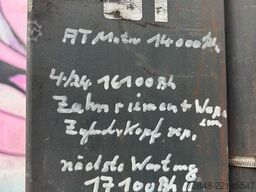 AT Motor 14000 Bh
4/24 16100 Bh
Zahnriemen + Wapu
Zylinderkopf rep.
nächste Wartung
17100 Bh